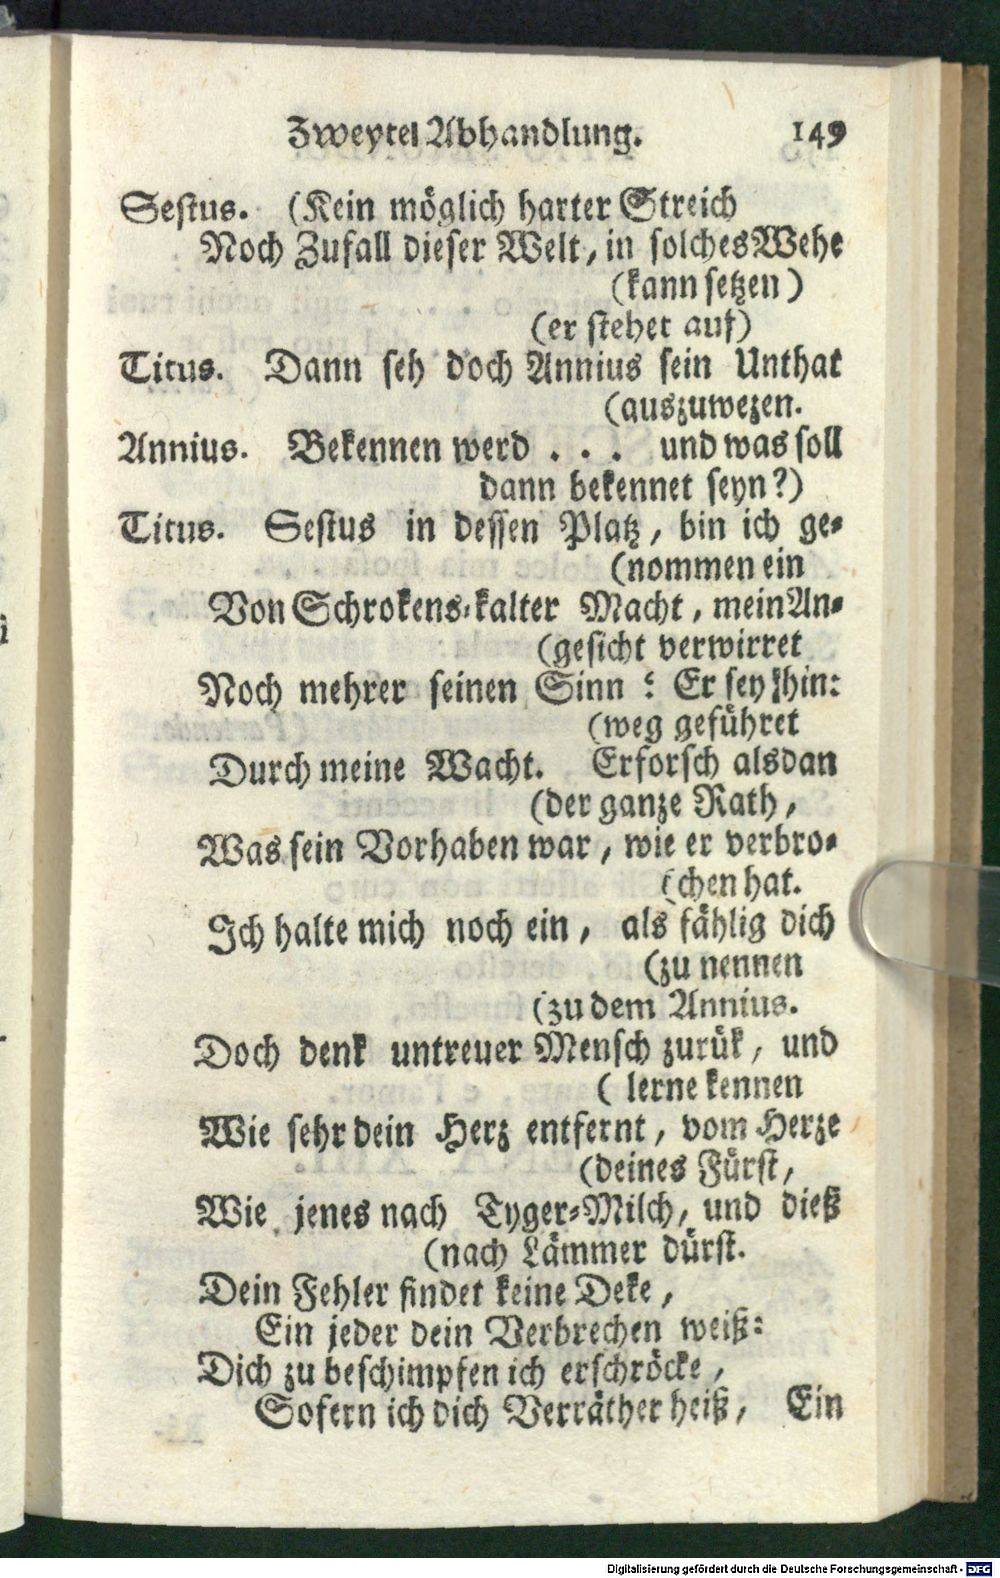 Zweytel Abhandlung. 149
Sestus. (Kein möglich harter Streich
Noch Zufall dieser Welt, in solches Wehe
(kann setzen)
(er stehet auf)
Titus. Dann seh doch Annius sein Unthat
(auszuwezen.
Annius. Bekennen werd . . . und was soll
dann bekennet seyn?)
Titus. Sestus in dessen Platz, bin ich ge-
(nommen ein
Von Schrokens-kalter Macht, mein An-
(gesicht verwirret
Noch mehrer seinen Sinn : Er sey hin:
(weg geführet
Durch meine Wacht. Erforsch alsdan
(der ganze Rath,
Was sein Vorhaben war, wie er verbro-
(chen hat.
Ich halte mich noch ein, als fählig dich
(zu nennen
(zu dem Annius.
Doch denk untreuer Mensch zurük, und
( lerne kennen
Wie sehr dein Herz entfernt, vom Herze
(deines Fürst,
Wie jenes nach Tyger-Milch, und dieß
(nach Lämmer dürst.
Dein Fehler findet keine Deke,
Ein jeder dein Verbrechen weiß:
Dich zu beschimpfen ich erschröcke,
Sofern ich dich Verräther heiß, Ein
Digitalisierung gefördert durch die Deutsche Forschungsgemeinschaft - DFG